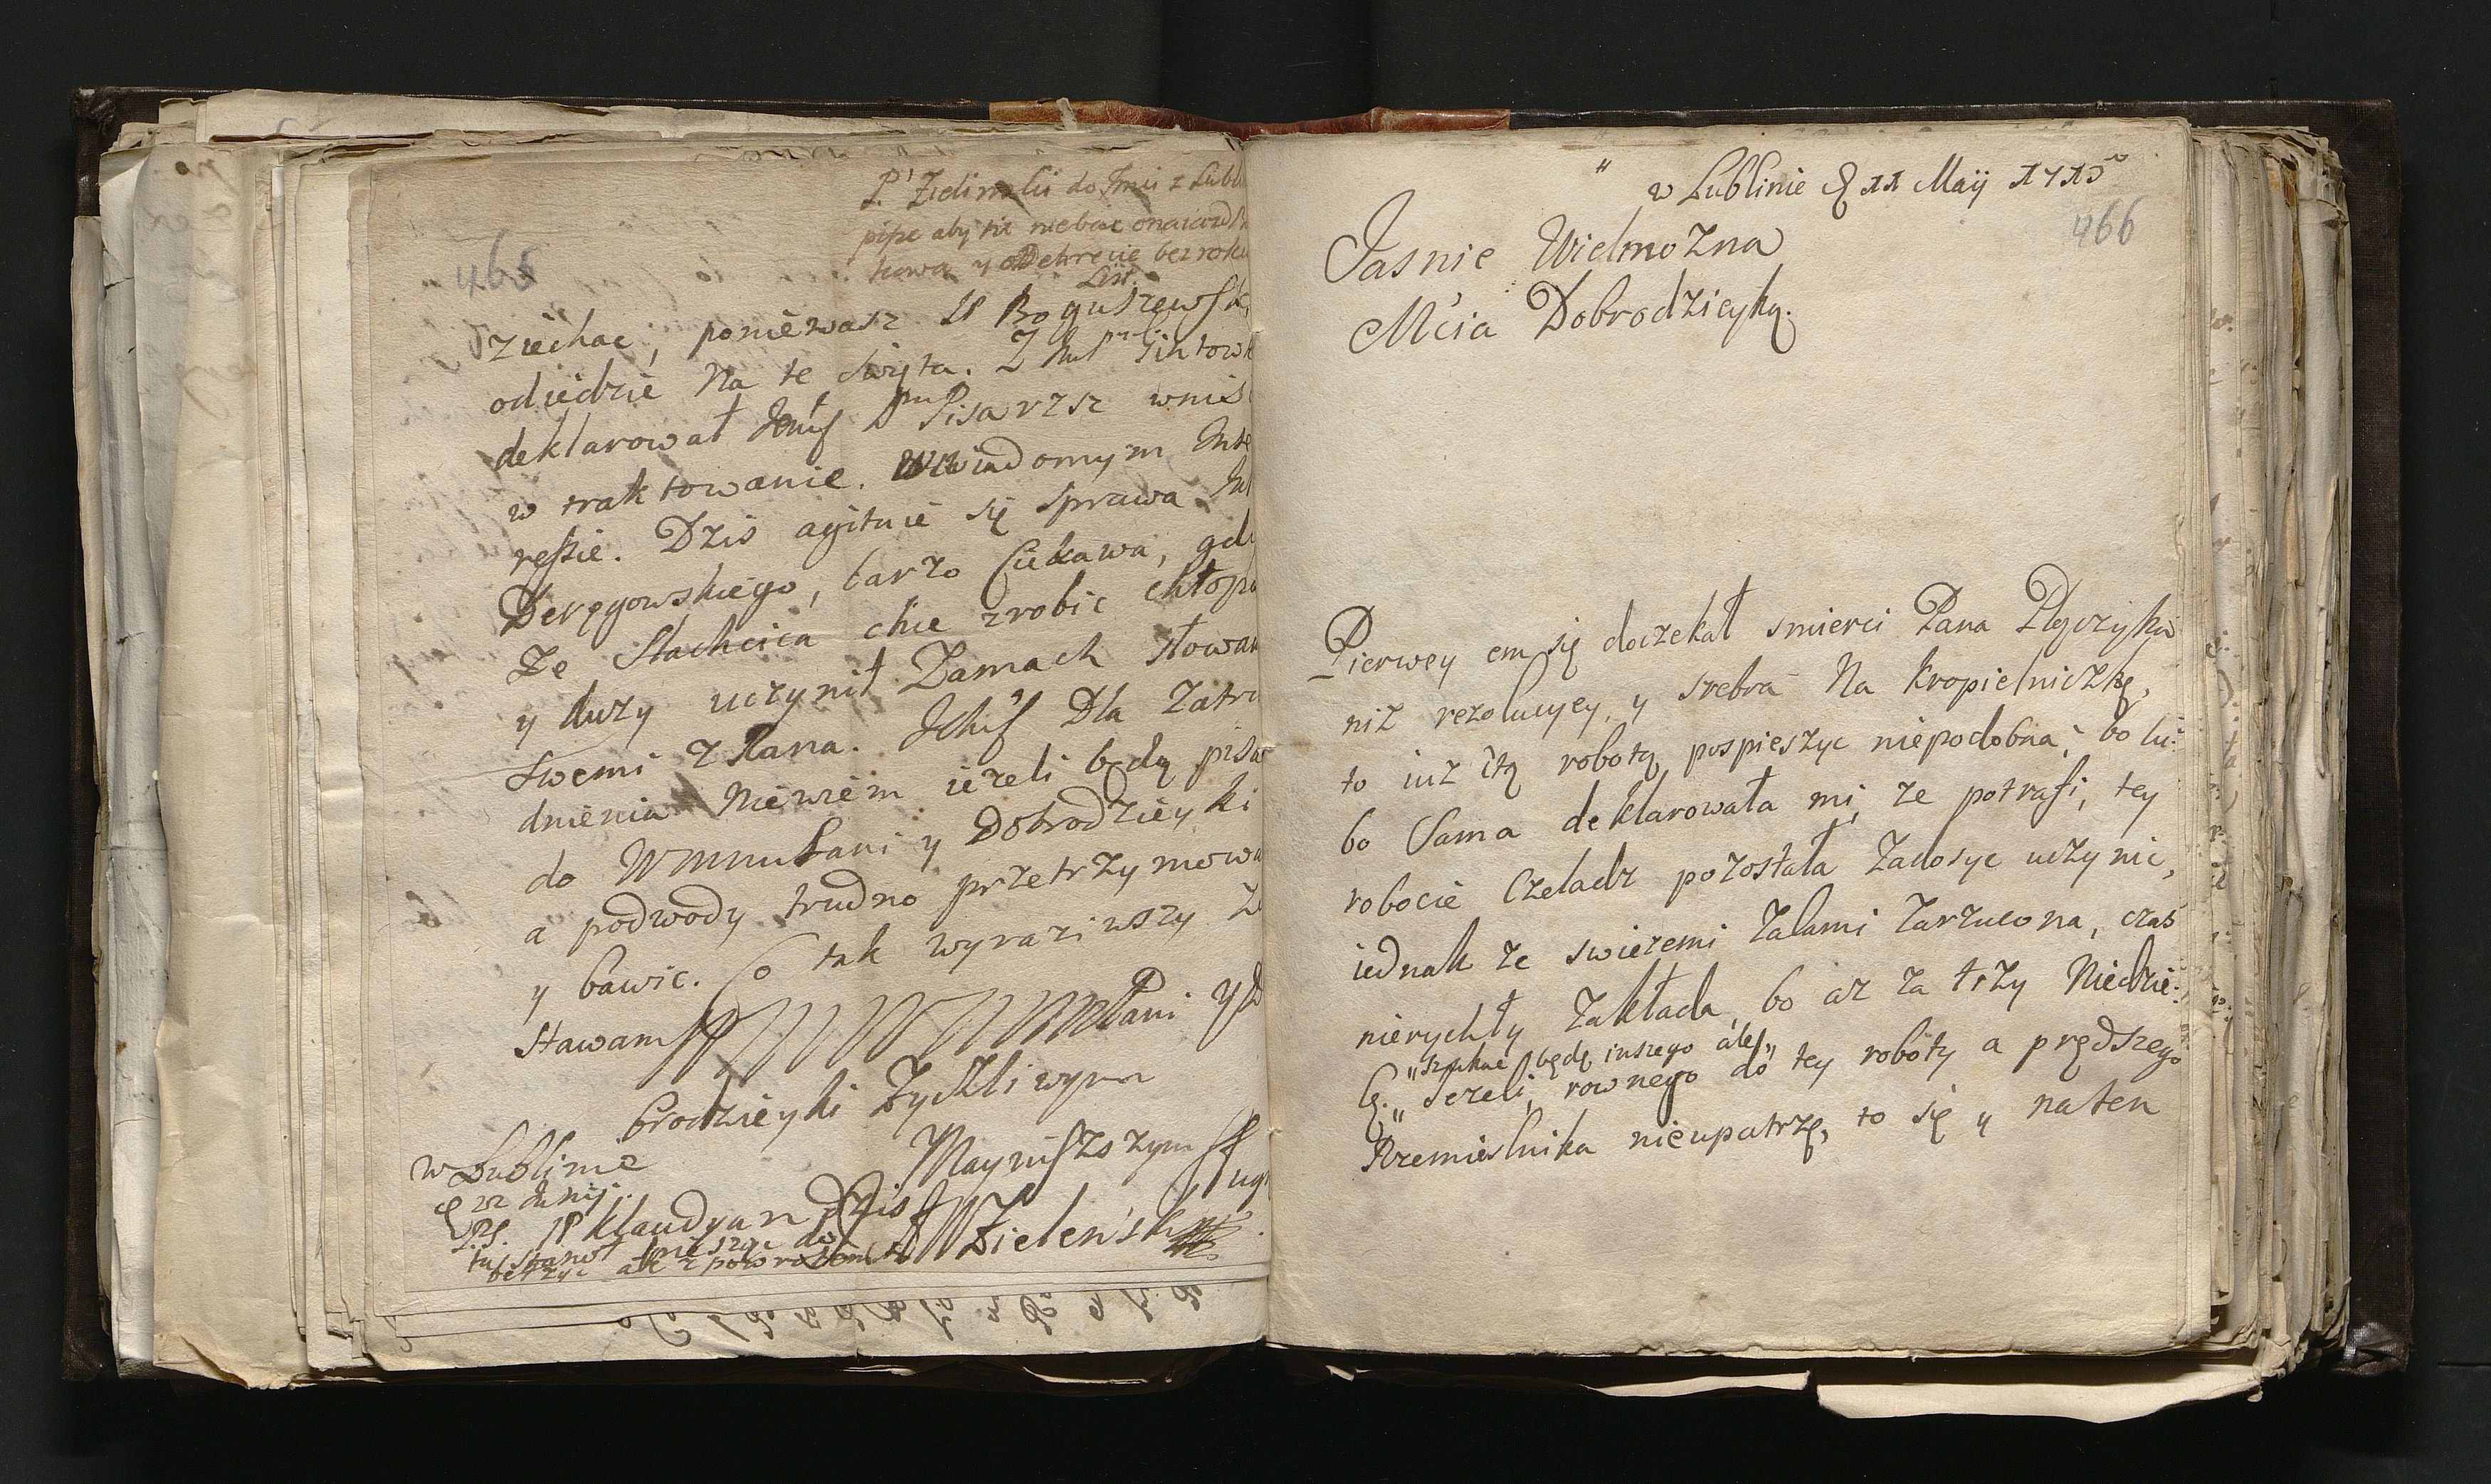 465
P. Zielinski do Jmci z Lubl
pisze aby sie niebac
y o Dekrecie bez roku
List.
ziechac, poniewasz JP Boguszewsk
odiedzie Na te swięta. Z
deklarował Jmś P Pisarzsz wnis
w traktowanie. Wiwiadomym Inte
ressie. Dzis agituie się sprawa
Deręgowskiego, barzo Ciekawa, gd
ze Slachcica chce zrobic chłop
y duzy uczynił Zamach słowam
swemi z Rana. Jchś Dla Zatru
dnienia Niewiem iezeli będą pisa
do Wmmm Pani y Dobrodzieyki
a podwody trudno przetrzymowa
y bawic. Co tak wyraziwszy
stawam Pani y D
brodzieyki Zyczliwym
Maynisszszym
slug
w Lublinie
Junij.
PS. JP Klaudyan Dzis Zielenski
tu stanoł
ale z powrotem
466
w Lublinie d 11 Maij 1715
Jasnie Wielmozna
Mcia Dobrodzieyko.
Pierwey em się doczekał smierci Pana
niz rezolucyey, y srebra Na kropielniczkę,
to iuz tą robotą pospieszyc niepodobna; bo lu:
bo Sama deklarowała mi, ze potrafi, tey
robocie Czeladz pozostała Zadosyc uczynic,
iednak ze swiezemi Zalami Zarzucona, czas
nierychły Zakłada, bo az za trzy Niedzie:
le. "szukac będę inszego ále"
Jezeli, rownego do tey roboty a prędszego
Rzemieslnika nieupatrzę, to się y na ten